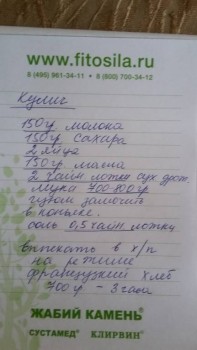 www.fitosila.ru
8 (495) 961-34-11 • 8 (800) 700-34-12
Кулич
150 г молока
150 г сахара
2 яйца
150 гр. масла
2 чайн. ложки сух. дрож.
Мука 700-800 г
изюм замочить
в коньяке.
соль 0,5 чайн ложки
выпекать в х/п
на режиме
французский хлеб
700 г - 3 часа
ЖАБИЙ КАМЕНЬ®
СУСТАМЕД® КЛИРВИН®